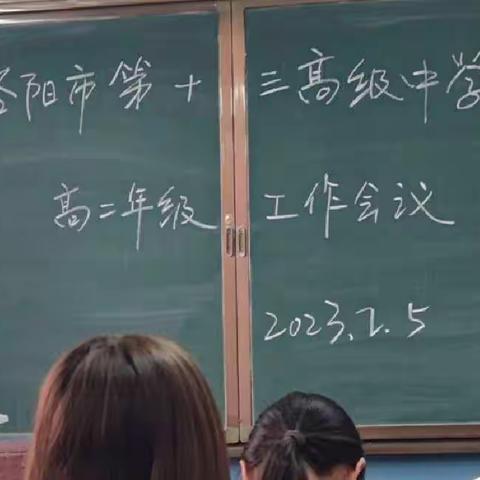 阳市第十三高级中学
高二年级工作会议
2023.7.5